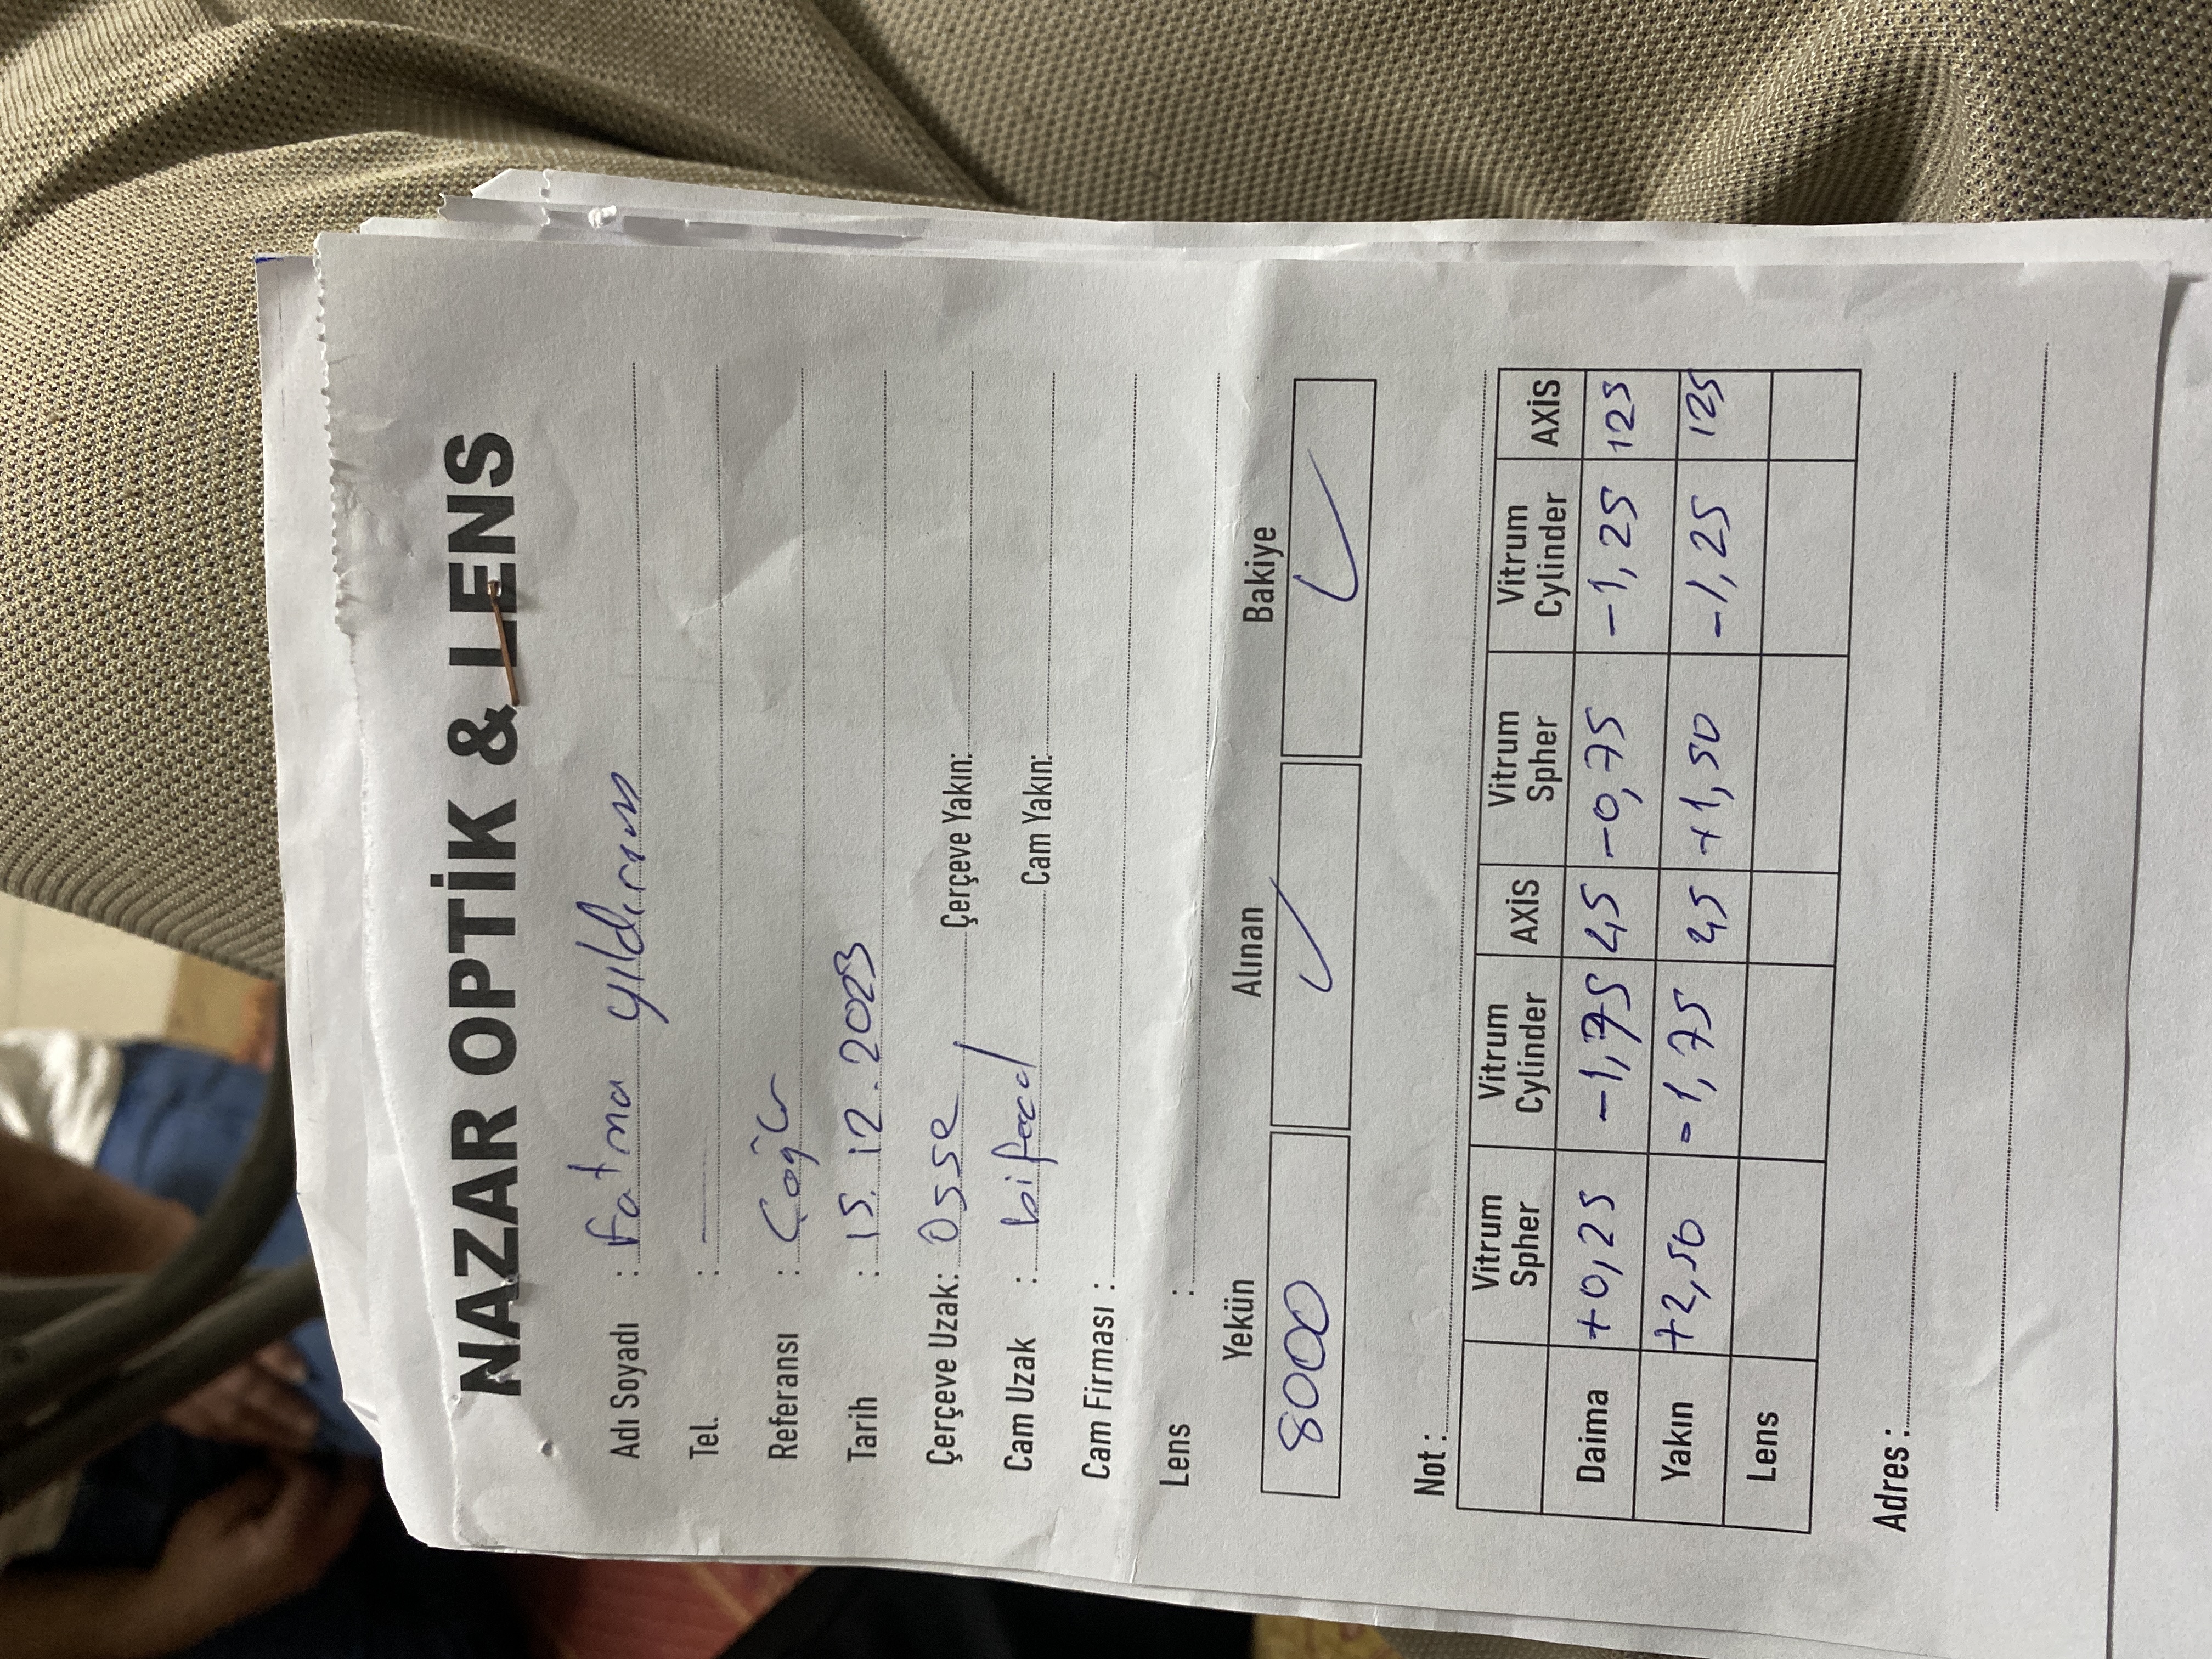 NAZAR OPTİK & LENS
Adı Soyadı : Fatma yıldırım
Tel. : —
Referansı :
Tarih : 15.12.2023
Çerçeve Uzak: Osse Çerçeve Yakın:
Cam Uzak : bifocal Cam Yakın:
Cam Firması :
Lens :
Yekün Alınan Bakiye
8000 ✓ ✓
Not :
Vitrum Spher Vitrum Cylinder AXİS Vitrum Spher Vitrum Cylinder AXİS
Daima +0,25 -1,75 45 -0,75 -1,25 125
Yakın +2,50 -1,75 45 +1,50 -1,25 125
Lens
Adres :